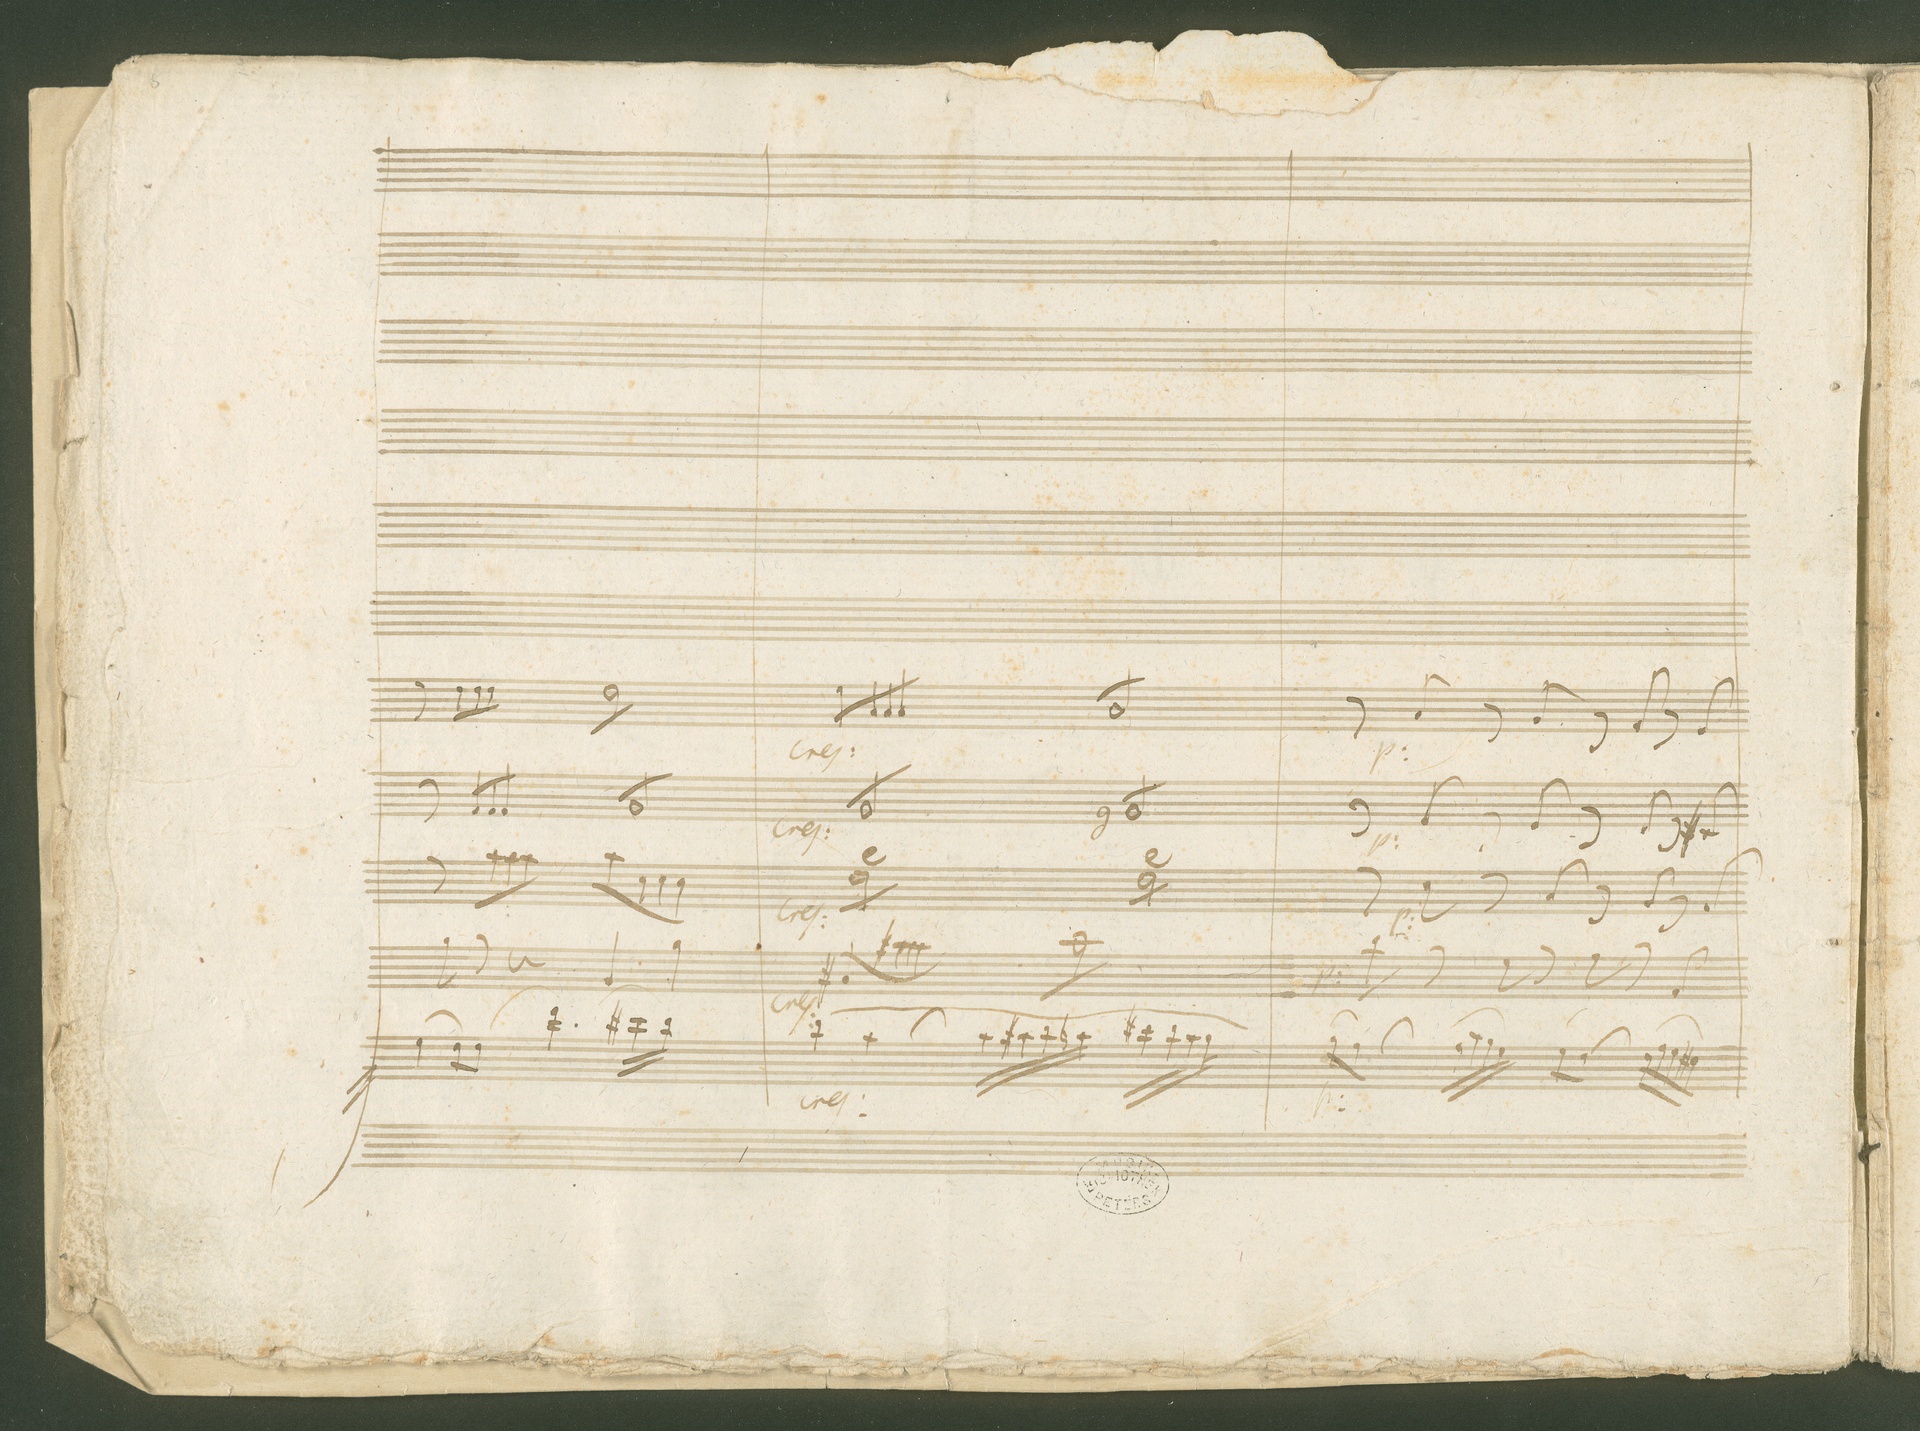 Cres:
p:
Cres:
p:
e
e
Cres:
p:
Cres:
p:
cres:
p:
MUSIK
BIBLIOTHEK
PETERS